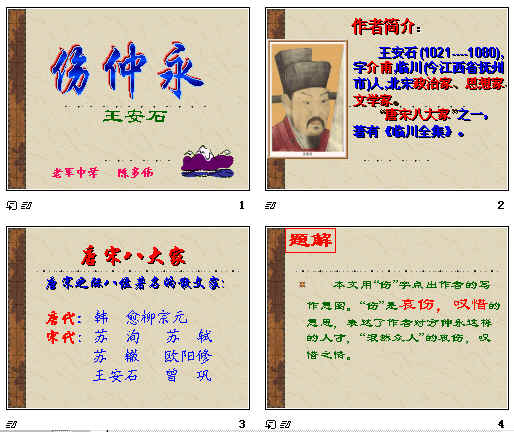 伤仲永
王安石
老军中学 陈多伤
1
作者简介：
王安石(1021----1080),
字介甫,临川(今江西省抚州
市)人,北宋政治家、思想家
文学家。
“唐宋八大家”之一，
著有《临川全集》。
2
唐宋八大家
唐宋之际八位著名的散文家：
唐代：韩 愈柳宗元
宋代：苏 洵 苏 轼
苏 辙 欧阳修
王安石 曾 巩
3
题解
本文用“伤”字点出作者的写
作意图。“伤”是哀伤，叹惜的
意思，表达了作者对方仲永这样
的人才，“泯然众人”的哀伤，叹
惜之情。
4